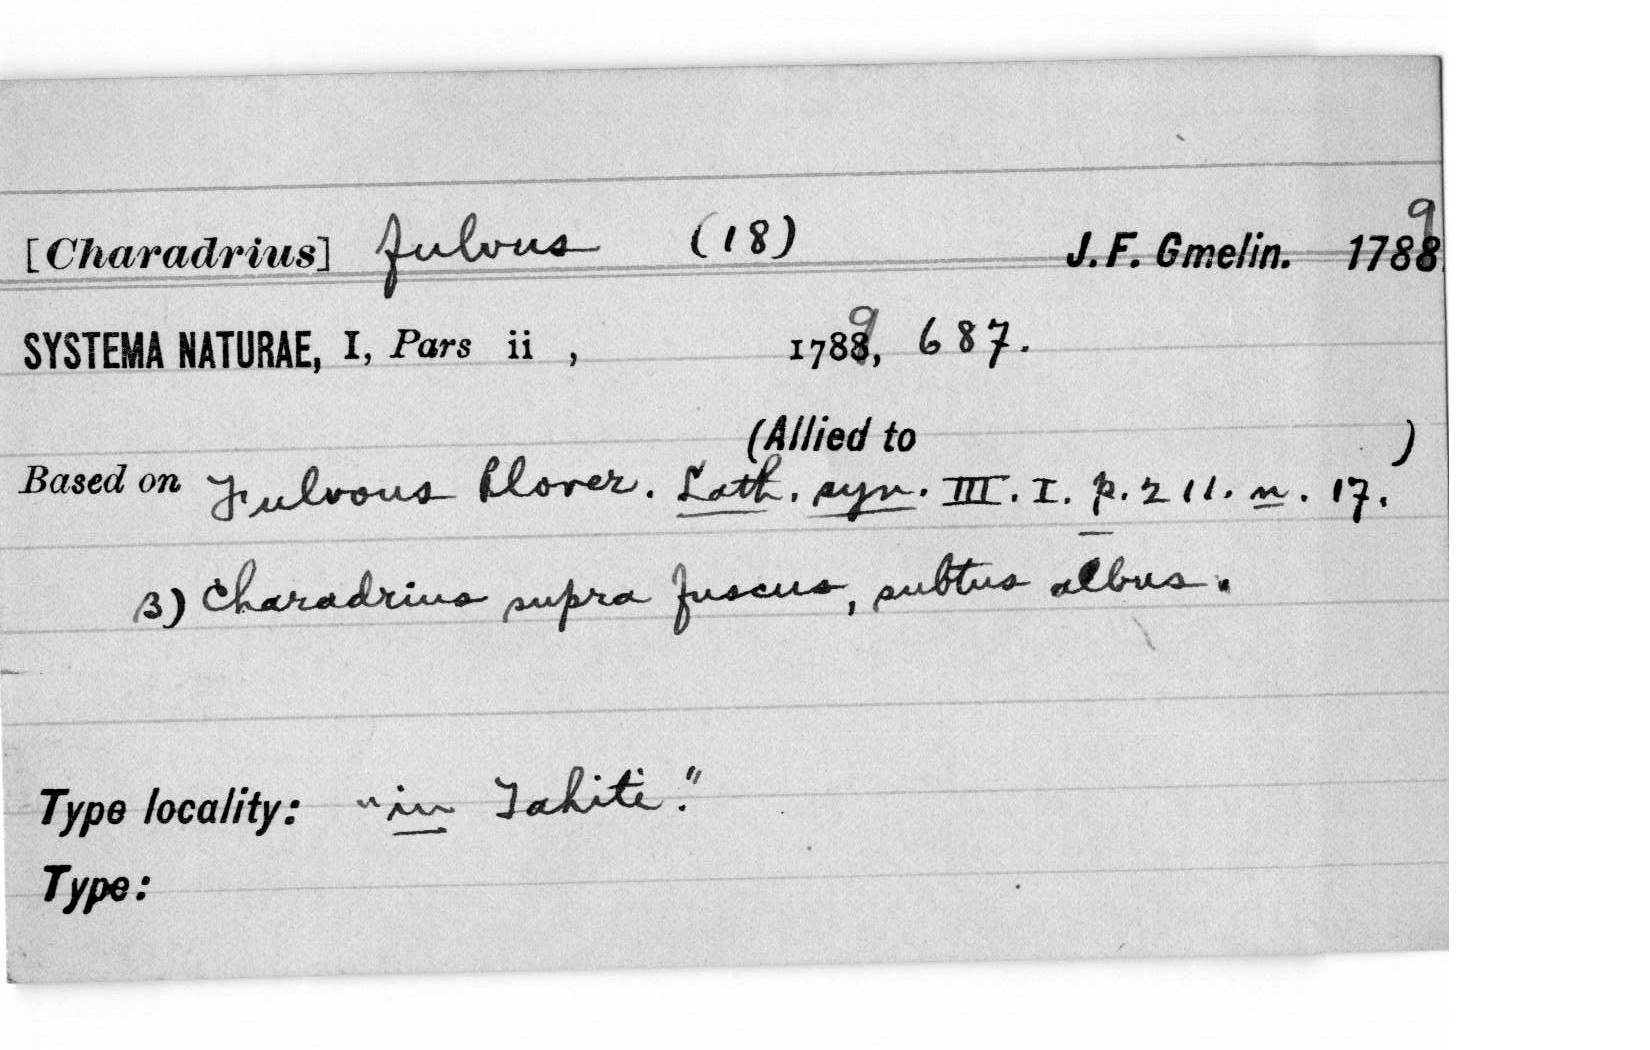 [Charadrius] fulvus (18) J. F. Gmelin. 1788 9
SYSTEMA NATURAE, I, Pars ii , 1788 9, 687.
(Allied to )
Based on Fulvous Plover. Lath. syn. III. I. p. 211. n. 17.
β) Charadrius supra fuscus, subtus albus.
Type locality: "in Tahiti."
Type: